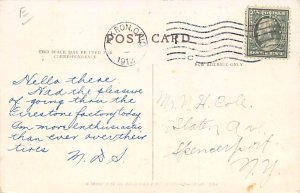 AKRON, OHIO
1913
POST CARD
THIS SPACE MAY BE USED FOR
CORRESPONDENCE
FOR ADDRESS ONLY
Hello there.
Had the pleasure
of going thru the
Firestone factory today
Am more enthusiastic
than ever over their
tires
N.D.S.
Mr. N. H. Cole.
Slaton Ave.
Spencerport,
N.Y.